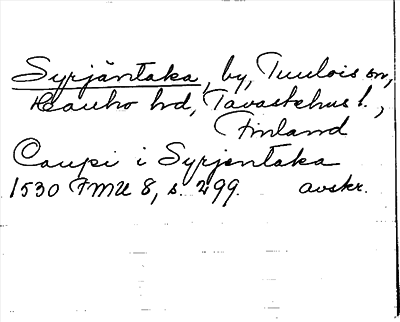 Syrjäntaka, by, Tuulois sn,
Hauho hd, Tavastehus l.,
Finland
Caupi i Syrjentaka
1530 FMU 8, s. 299. avskr.